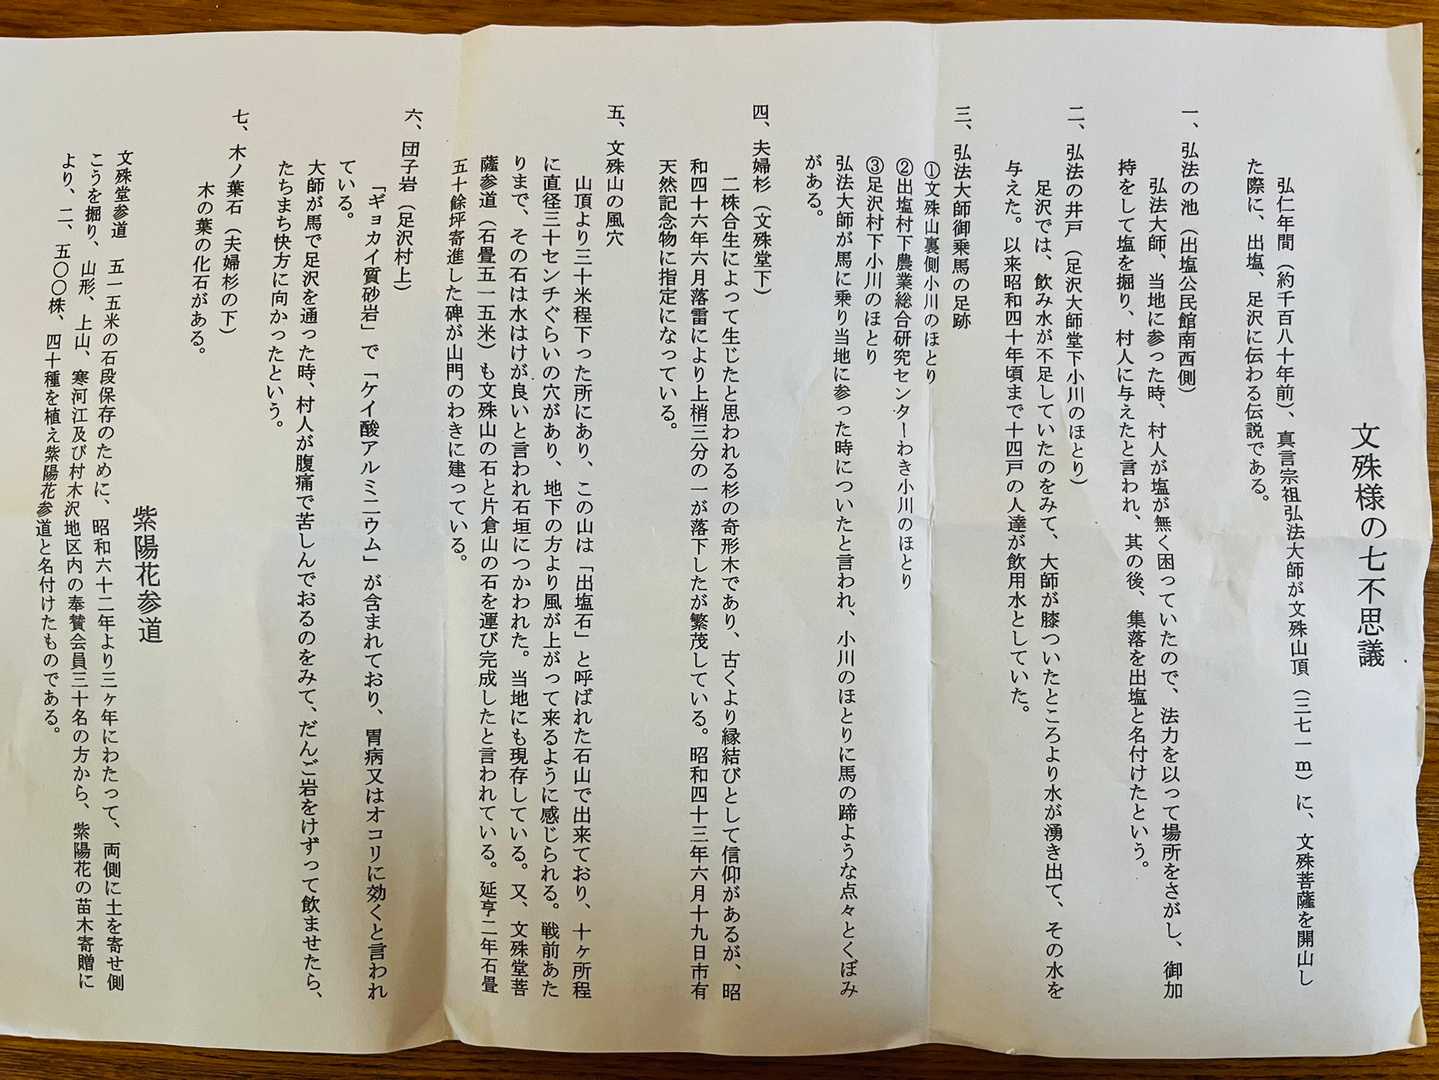 文殊様の七不思議
弘仁年間（約千百八十年前）、真言宗祖弘法大師が文殊山頂（三七一ｍ）に、文殊菩薩を開山し
た際に、出塩、足沢に伝わる伝説である。
一、弘法の池（出塩公民館南西側）
弘法大師、当地に参った時、村人が塩が無く困っていたので、法力を以って場所をさがし、御加
持をして塩を掘り、村人に与えたと言われ、其の後、集落を出塩と名付けたという。
二、弘法の井戸（足沢大師堂下小川のほとり）
足沢では、飲み水が不足していたのをみて、大師が膝ついたところより水が湧き出て、その水を
与えた。以来昭和四十年頃まで十四戸の人達が飲用水としていた。
三、弘法大師御乗馬の足跡
①文殊山裏側小川のほとり
②出塩村下農業総合研究センターわき小川のほとり
③足沢村下小川のほとり
弘法大師が馬に乗り当地に参った時についたと言われ、小川のほとりに馬の蹄ような点々とくぼみ
がある。
四、夫婦杉（文殊堂下）
二株合生によって生じたと思われる杉の奇形木であり、古くより縁結びとして信仰があるが、昭
和四十六年六月落雷により上梢三分の一が落下したが繁茂している。昭和四十三年六月十九日市有
天然記念物に指定になっている。
五、文殊山の風穴
山頂より三十米程下った所にあり、この山は「出塩石」と呼ばれた石山で出来ており、十ヶ所程
に直径三十センチぐらいの穴があり、地下の方より風が上がって来るように感じられる。戦前あた
りまで、その石は水はけが良いと言われ石垣につかわれた。当地にも現存している。又、文殊堂菩
薩参道（石畳五一五米）も文殊山の石と片倉山の石を運び完成したと言われている。延亨二年石畳
五十餘坪寄進した碑が山門のわきに建っている。
六、団子岩（足沢村上）
「ギョカイ質砂岩」で「ケイ酸アルミニウム」が含まれており、胃病又はオコリに効くと言われ
ている。
大師が馬で足沢を通った時、村人が腹痛で苦しんでおるのをみて、だんご岩をけずって飲ませたら、
たちまち快方に向かったという。
七、木ノ葉石（夫婦杉の下）
木の葉の化石がある。
紫陽花参道
文殊堂参道　五一五米の石段保存のために、昭和六十二年より三ヶ年にわたって、両側に土を寄せ側
こうを掘り、山形、上山、寒河江及び村木沢地区内の奉賛会員三十名の方から、紫陽花の苗木寄贈に
より、二、五〇〇株、四十種を植え紫陽花参道と名付けたものである。